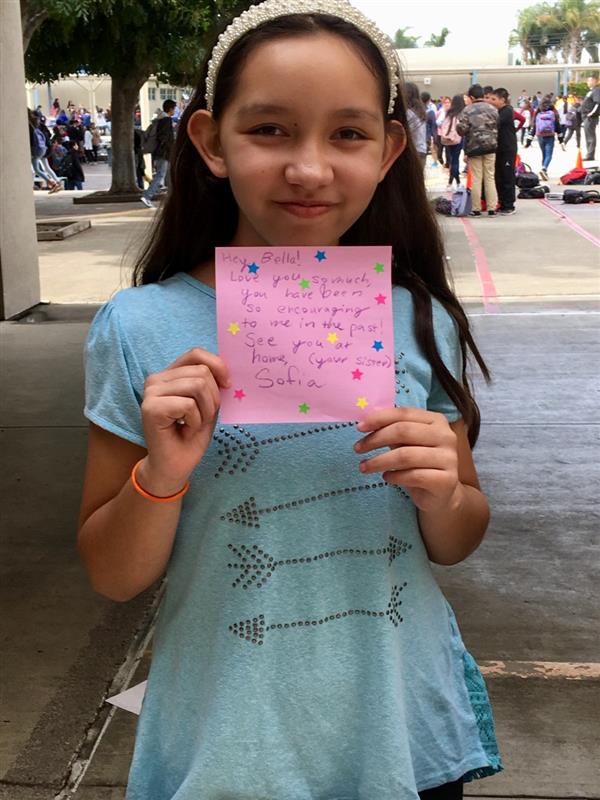 Hey Bella!
Love you somuch,
you have been
so encouraging
to me in the past!
See you at
home, (your sister)
Sofia